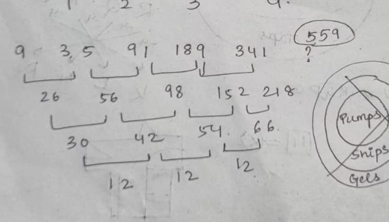 1 2 3 4.
9 35 91 189 341 559
?
26 56 98 152 218
30 42 54 66
12 12 12
Pumps
Snips
Gels